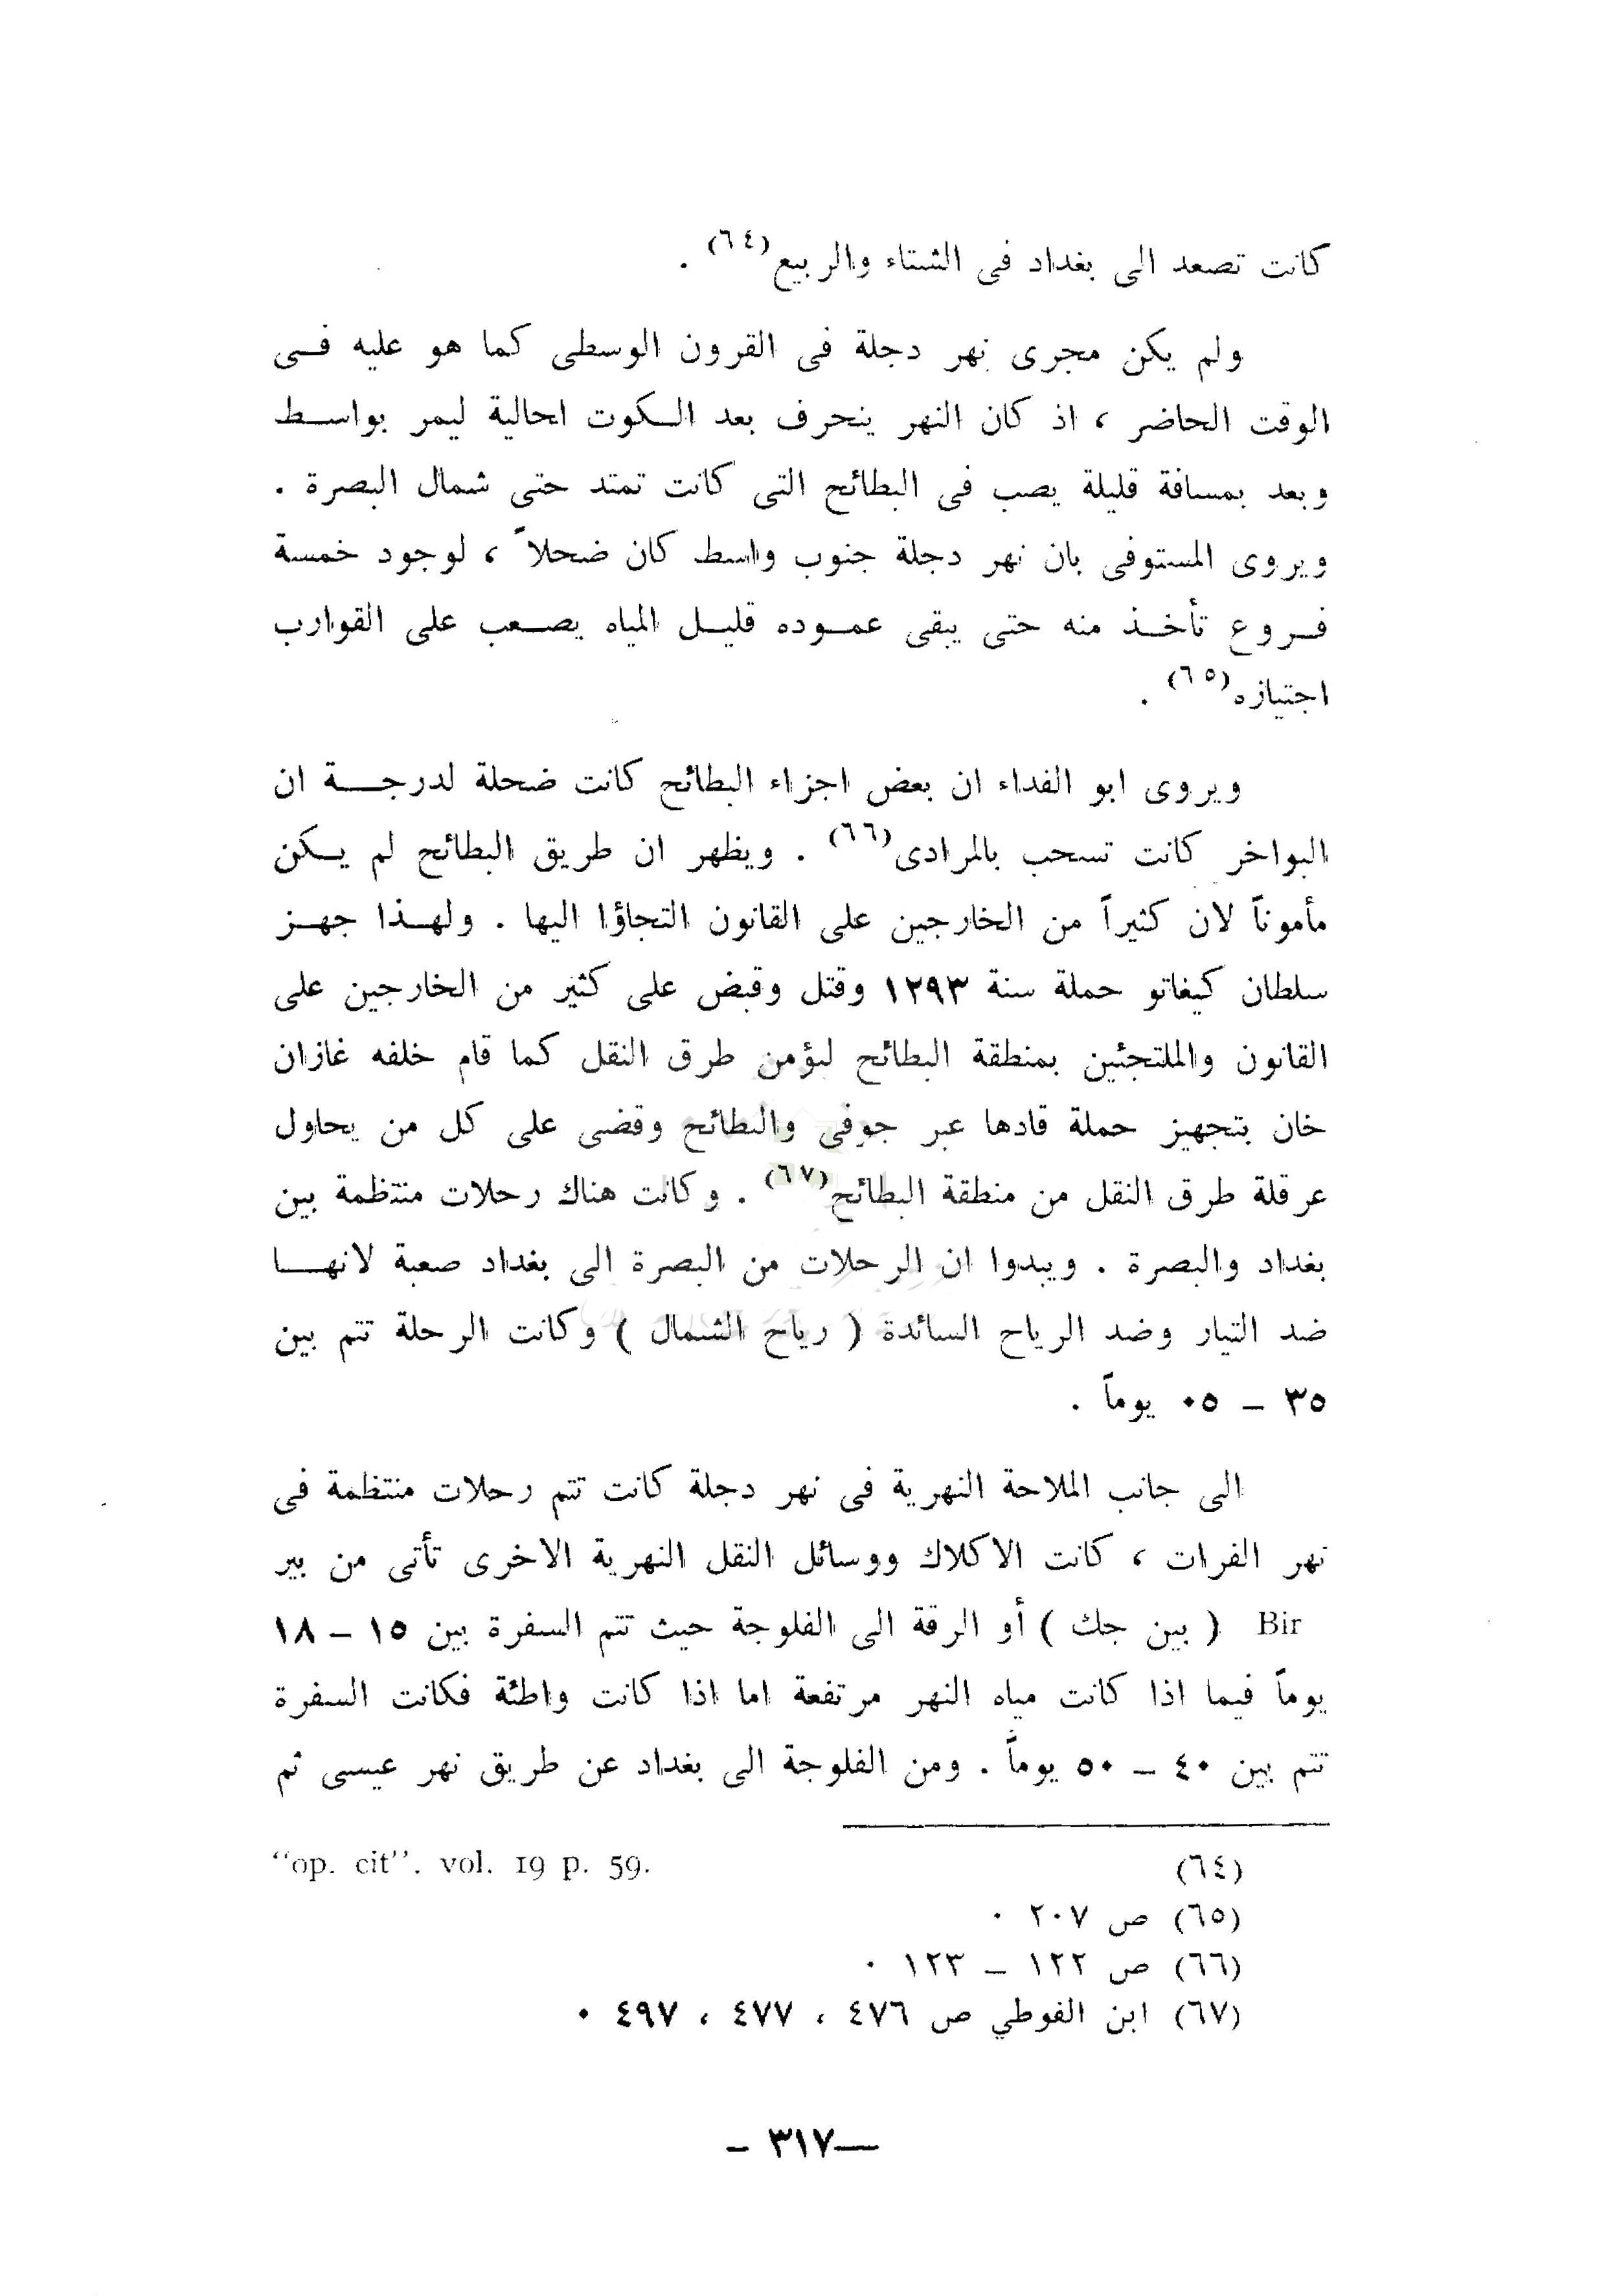 كانت تصعد الى بغداد فى الشتاء والربيع(٦٤) .
ولم يكن مجرى نهر دجلة فى القرون الوسطى كما هو عليه فى
الوقت الحاضر ، اذ كان النهر ينحرف بعد الكوت احالية ليمر بواسط
وبعد بمسافة قليلة يصب فى البطائح التى كانت تمتد حتى شمال البصرة .
ويروى المستوفى بان نهر دجلة جنوب واسط كان ضحلاً ، لوجود خمسة
فروع تأخذ منه حتى يبقى عموده قليل المياه يصعب على القوارب
اجتيازه(٦٥) .
ويروى ابو الفداء ان بعض اجزاء البطائح كانت ضحلة لدرجة ان
البواخر كانت تسحب بالمرادى(٦٦) . ويظهر ان طريق البطائح لم يكن
مأموناً لان كثيراً من الخارجين على القانون التجاؤا اليها . ولهذا جهز
سلطان كيغاتو حملة سنة ١٢٩٣ وقتل وقبض على كثير من الخارجين على
القانون والملتجئين بمنطقة البطائح ليؤمن طرق النقل كما قام خلفه غازان
خان بتجهيز حملة قادها عبر جوفى والبطائح وقضى على كل من يحاول
عرقلة طرق النقل من منطقة البطائح(٦٧) . وكانت هناك رحلات منتظمة بين
بغداد والبصرة . ويبدوا ان الرحلات من البصرة الى بغداد صعبة لانها
ضد التيار وضد الرياح السائدة ( رياح الشمال ) وكانت الرحلة تتم بين
٣٥ – ٠٥ يوماً .
الى جانب الملاحة النهرية فى نهر دجلة كانت تتم رحلات منتظمة فى
نهر الفرات ، كانت الاكلاك ووسائل النقل النهرية الاخرى تأتى من بير
Bir ( بين جك ) أو الرقة الى الفلوجة حيث تتم السفرة بين ١٥ – ١٨
يوماً فيما اذا كانت مياه النهر مرتفعة اما اذا كانت واطئة فكانت السفرة
تتم بين ٤٠ – ٥٠ يوماً . ومن الفلوجة الى بغداد عن طريق نهر عيسى ثم
(٦٤) "op. cit". vol. 19 p. 59.
(٦٥) ص ٢٠٧ .
(٦٦) ص ١٢٢ – ١٢٣ .
(٦٧) ابن الفوطي ص ٤٧٦ ، ٤٧٧ ، ٤٩٧ .
— ٣١٧ -